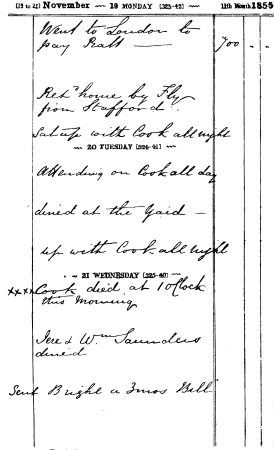 (15 to 21) November — 19 MONDAY (323-42) — 11th Month 1855
Went to London to
pay Pratt — 700 . .
Retd home by Fly
from Stafford.
Sat up with Cook all night
20 TUESDAY (324-41)
Attending on Cook all day
dined at the Yard —
up with Cook all night
21 WEDNESDAY (325-40)
xxxx Cook died at 1 o'Clock
this Morning
Jere & Wm Saunders
dined
Sent Bright a 3mos Bill